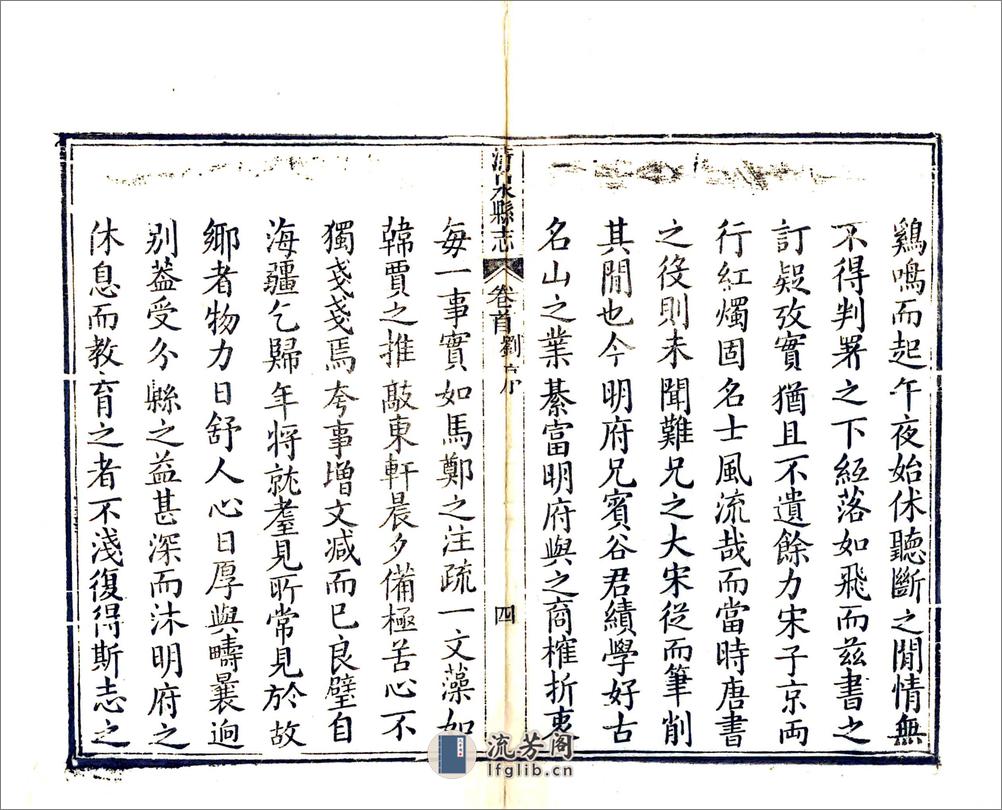 鷄鳴而起午夜始休聽斷之閒情無
不得判署之下經落如飛而兹書之
訂疑攷實猶且不遺餘力宋子京兩
行紅燭固名士風流哉而當時唐書
之役則未聞難兄之大宋從而筆削
其閒也今明府兄賓谷君績學好古
名山之業綦富明府與之商榷折衷
清泉縣志
卷首劉序
四
每一事實如馬鄭之注疏一文藻如
韓賈之推敲東軒晨夕備極苦心不
獨戔戔焉夸事增文減而已良壁自
海疆乞歸年將就耋見所常見於故
鄉者物力日舒人心日厚與疇曩迥
别葢受分縣之益甚深而沐明府之
休息而教育之者不淺復得斯志之
流芳阁
lfglib.cn